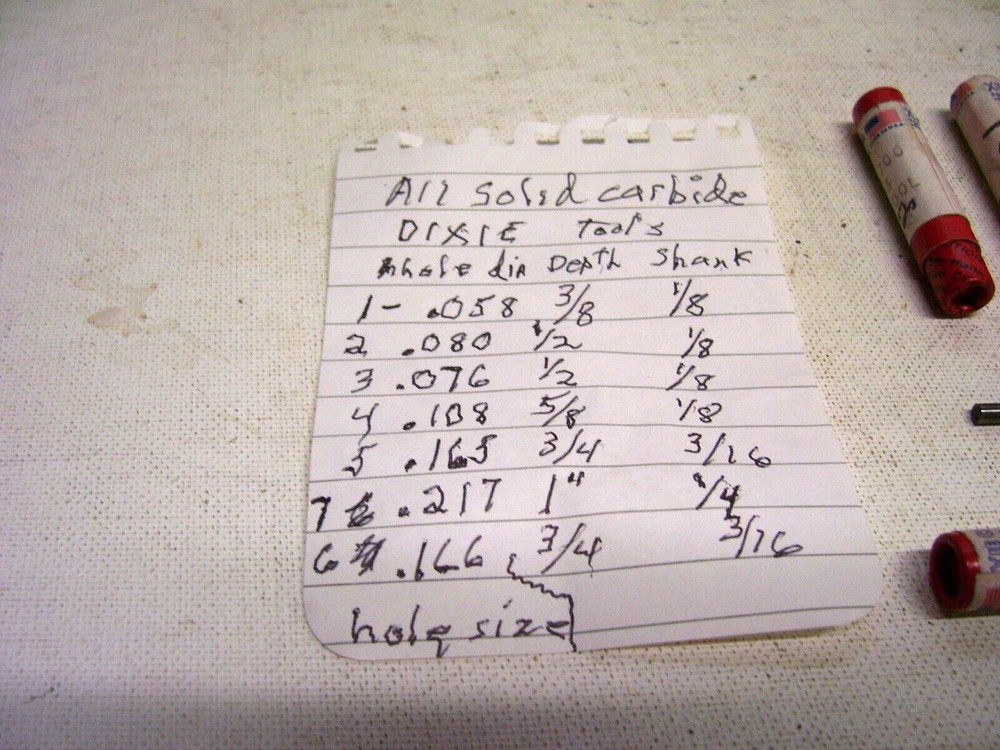 All solid carbide
DIXIE Tools
hole dia Depth Shank
1- .058 3/8 1/8
2 .080 1/2 1/8
3 .076 1/2 1/8
4 .108 5/8 1/8
5 .165 3/4 3/16
7 .217 1" 1/4
6 .166 3/4 3/16
hole size